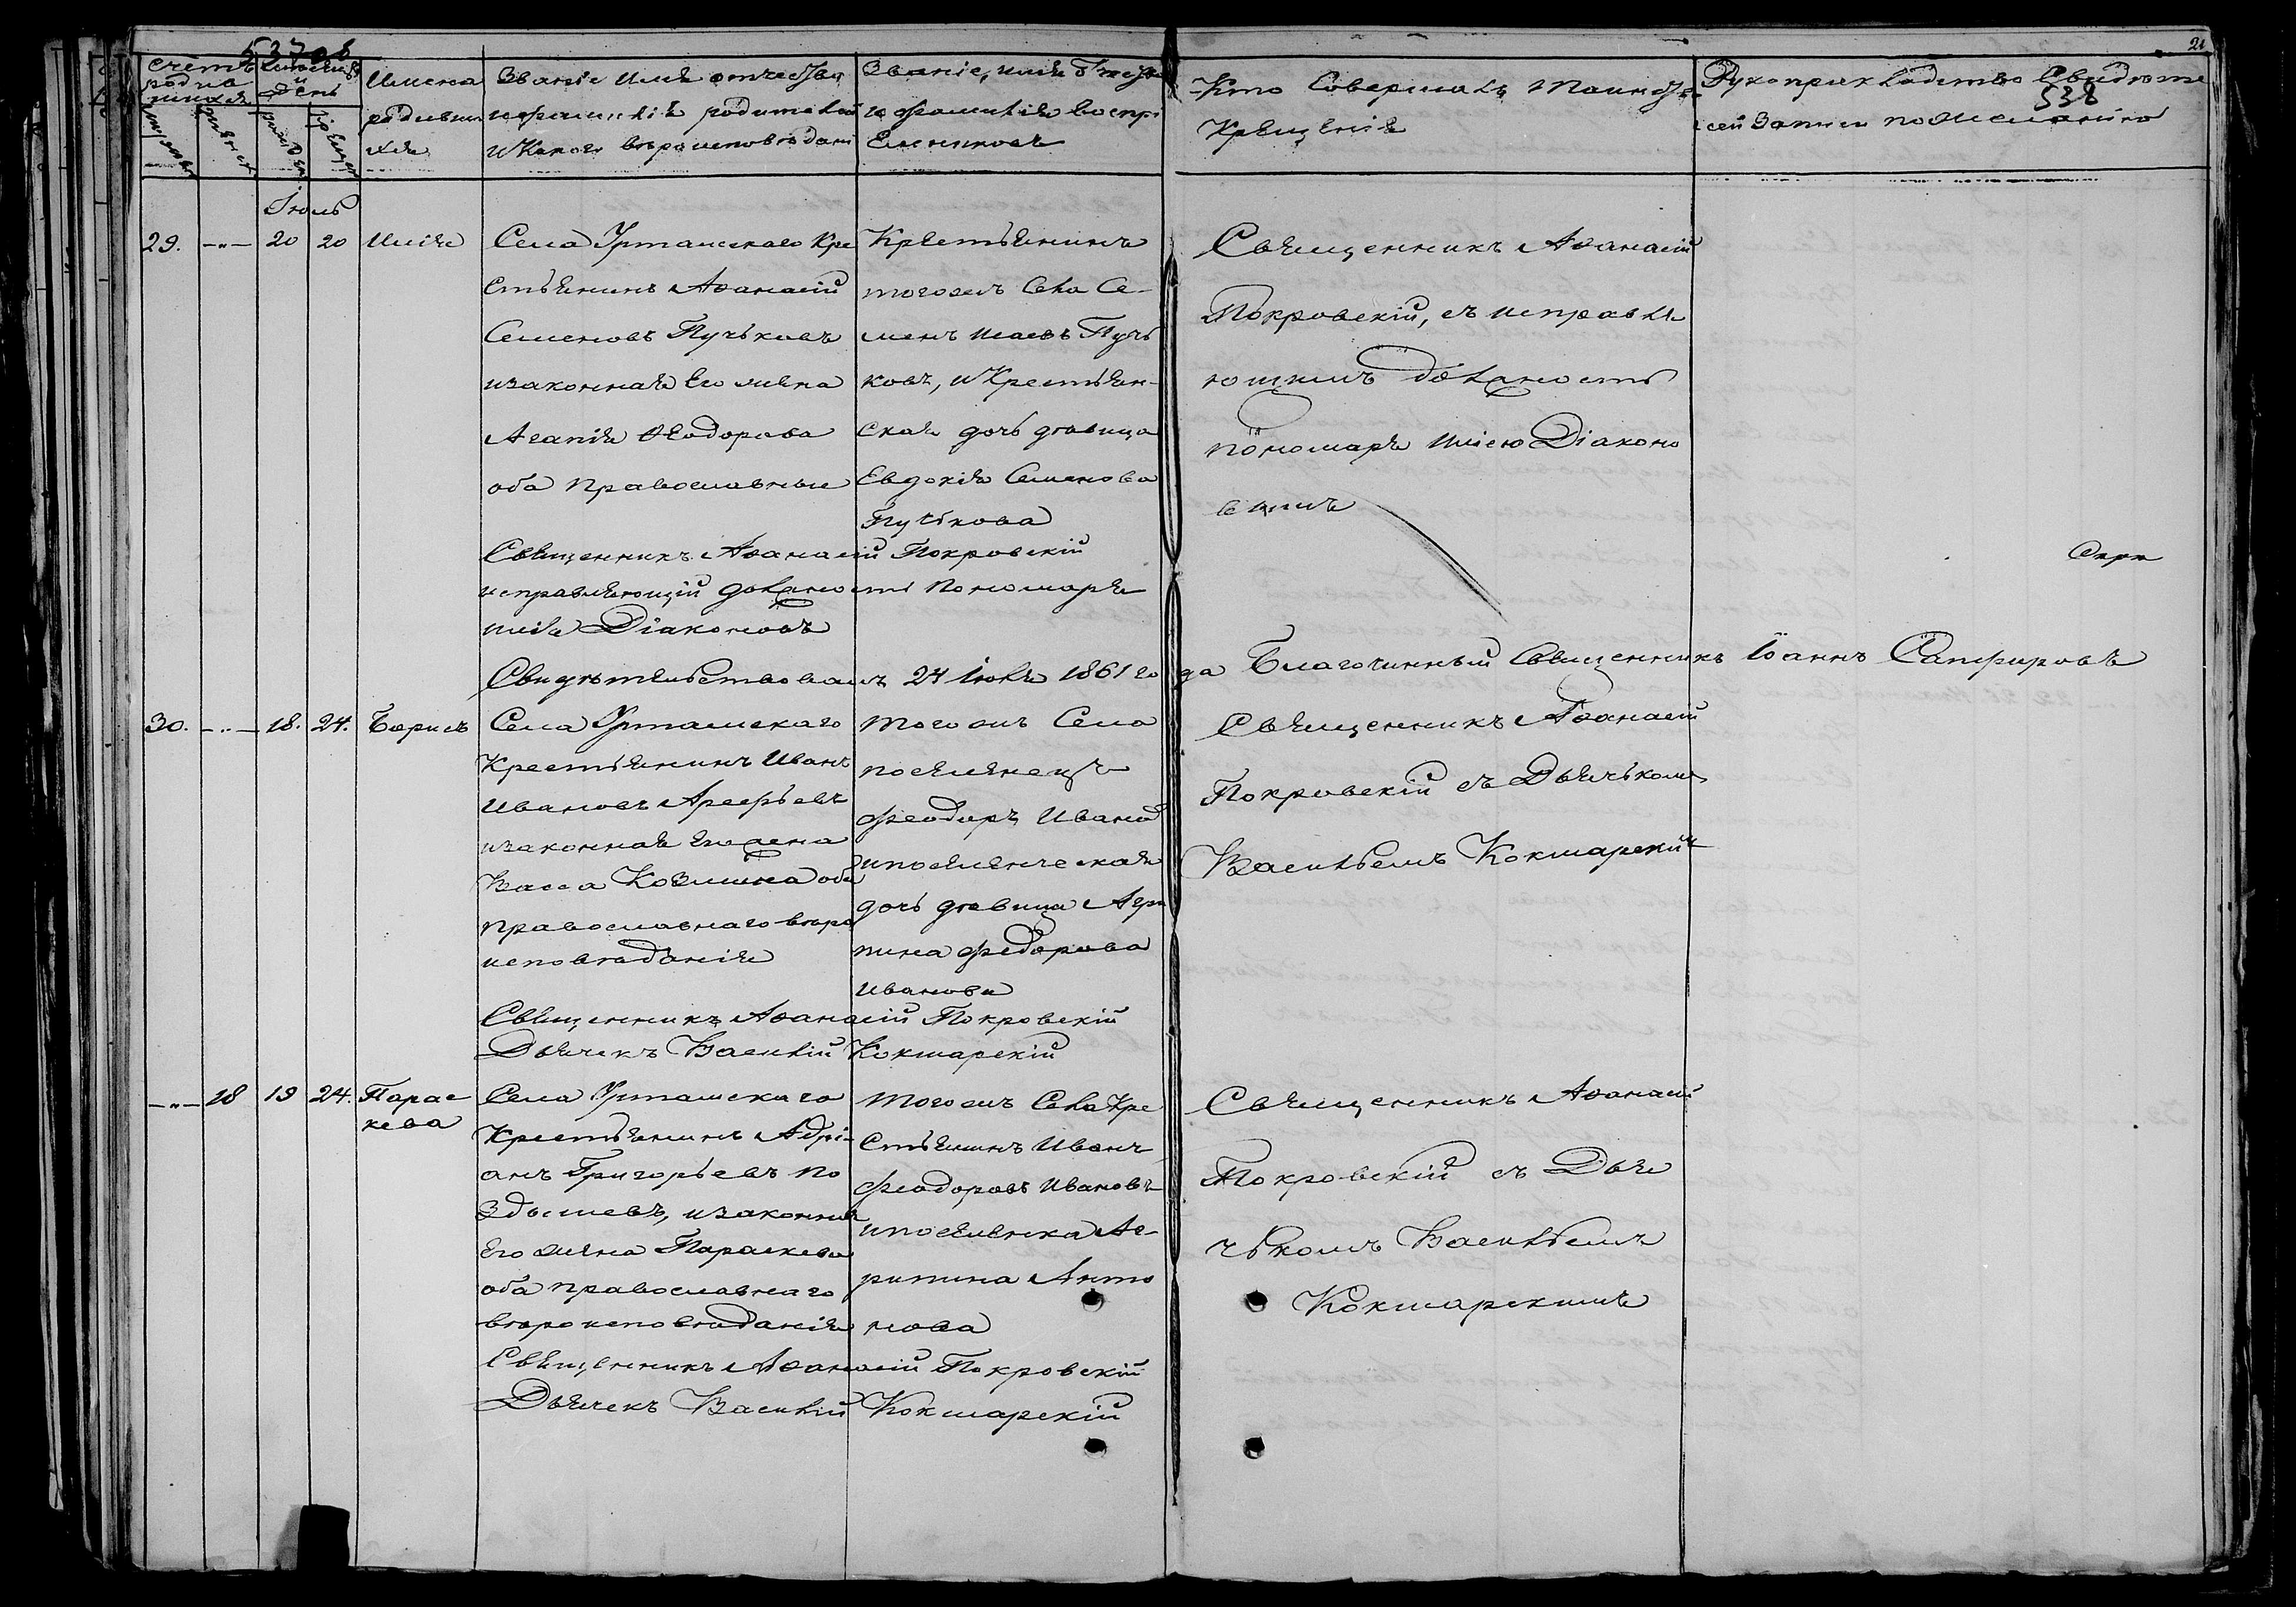 537 об
21
538
Счетъ родившихся
Мѣсяцъ и день
Имена родившихся
Званіе имя отчество и фамилія родителей и Какого вѣроисповѣданія
Званіе, имя Отчество и фамилія воспріемниковъ
Кто Совершалъ Таинство Крещенія
Рукоприкладство Свидѣтелей Записи по Желанію
Іюль
29. —"— 20 20 Илія
Села Урташскаго Кре
стьянинъ Аѳанасій
Семеновъ Пучьковъ
изаконная Его жена
Агапія Ѳеодорова
оба православные
Крестьянинъ
тогожъ Села Се-
менъ Исаевъ Пучь
ковъ, и Крестьян-
ская дочь дѣвица
Евдокія Семенова
Пучькова
Священникъ Аѳанасій
Покровскій, съ исправля
ющимъ должность
пономаря Иліею Діаконо
вымъ
Священникъ Аѳанасій Покровскій
исправляющій должность Пономаря
Илія Діаконовъ
Свидѣтельствовалъ 24 Іюля 1861 года Благочинный Священникъ Іоаннъ Сапфировъ
30. —"— 18. 24. Борисъ
Села Урташскаго
Крестьянинъ Иванъ
Ивановъ Арефьевъ
изаконная Его жена
Васса Козмина оба
православнаго вѣро
исповѣданія
Тогожъ Села
поселенецъ
Феодоръ Ивановъ
ипоселенческая
дочь дѣвица Агри
пина Федорова
Иванова
Священникъ Аѳанасій
Покровскій съ Дьячькомъ
Васильемъ Кокшарскимъ
Священникъ Аѳанасій Покровскій
Дьячекъ Василій Кокшарскій
—"— 18 19 24. Парас
кева
Села Урташскаго
Крестьянинъ Адрі-
анъ Григорьевъ По
здышевъ, изаконная
Его жена Параскева
оба православнаго
вѣроисповѣданія
Тогожъ Села Кре
стьянинъ Иванъ
Феодоровъ Ивановъ
ипоселенка Аг-
рипина Анто
нова
Священникъ Аѳанасій
Покровскій съ Дья
чькомъ Васильемъ
Кокшарскимъ
Священникъ Аѳанасій Покровскій
Дьячекъ Василій Кокшарскій